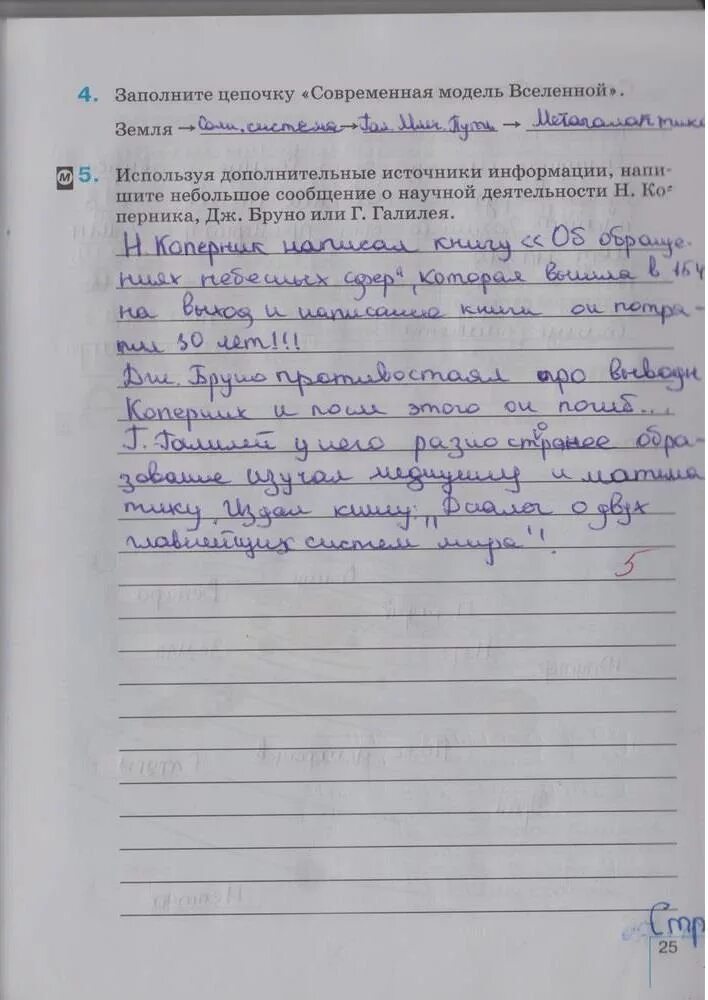 4. Заполните цепочку «Современная модель Вселенной».
Земля → Солн. система → Гал. Млеч. Путь → Метагалактика
м 5. Используя дополнительные источники информации, напи-
шите небольшое сообщение о научной деятельности Н. Ко-
перника, Дж. Бруно или Г. Галилея.
Н. Коперник написал книгу «Об обраще-
ниях небесных сфер", которая вышла в 154
на выход и написание книги он потра-
тил 30 лет!!!
Дж. Бруно противостоял про выводы
Коперник и после этого он погиб...
Г. Галилей у него разностороннее обра-
зование изучал медицину и матема
тику. Издал книгу: „Диалог о двух
главнейших систем мира"!
5
Стр
25